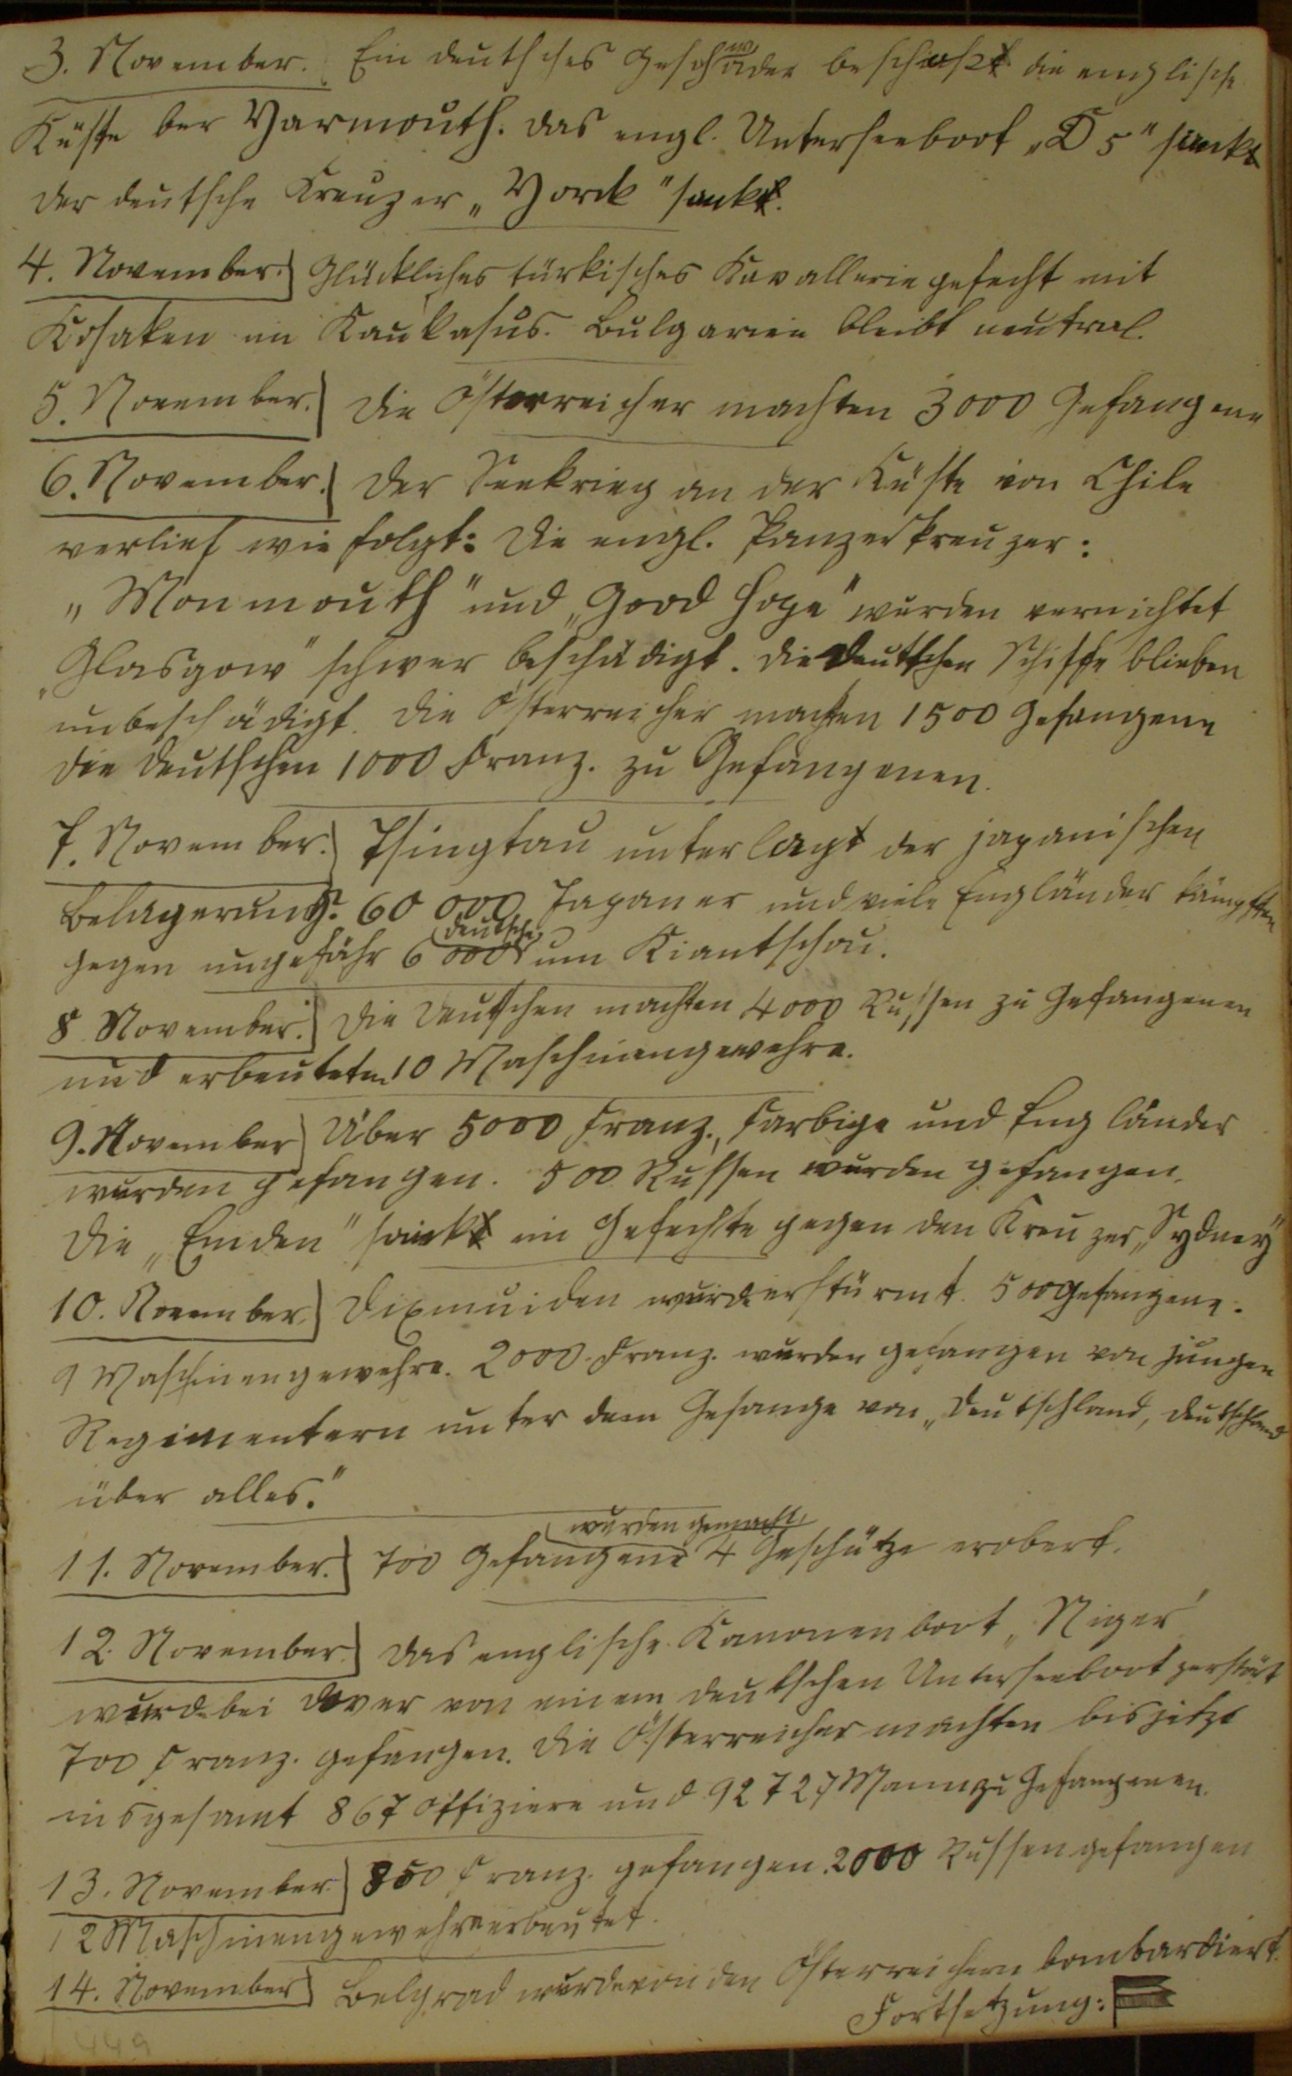 3. November. Ein deutsches Geschwader beschoßt die englische
Küste ber Yarmouth. Das engl. Unterseeboot „D 5" sankt
der deutsche Kreuzer „Yorck" sankt.
4. November. Glückliches türkisches Kavalleriegefecht mit
Kosaken im Kaukasus. Bulgarien bleibt neutral.
5. November. Die Österreicher machten 3000 Gefangene
6. November. Der Seekrieg an der Küste von Chile
verlief wie folgt: Die engl. Panzerkreuzer:
„Monmouth" und „Good Hope" wurden vernichtet
„Glasgow" schwer beschädigt. Die deutschen Schiffe blieben
unbeschädigt. Die Österreicher machten 1500 Gefangene
die Deutschen 1000 Franz. zu Gefangenen.
7. November. Tsingtau unterlagt der japanischen
Belagerung. 60 000 Japaner und viele Engländer kämpften
gegen ungefähr 6000 Deutsche um Kiautschou.
8 November. Die Deutschen machten 4000 Russen zu Gefangenen
und erbeuteten 10 Maschinengewehre.
9. November Über 5000 Franz., Farbige und Engländer
wurden gefangen. 500 Russen wurden gefangen.
Die „Emden" sankt im Gefechte gegen den Kreuzer „Sydney"
10. November. Dixmuiden wurde erstürmt. 500 Gefangene.
9 Maschinengewehre. 2000 Franz. wurden gefangen von jungen
Regimentern unter dem Gesange von „Deutschland, Deutschland
über alles."
11. November. 700 Gefangene wurden gemacht, 4 Geschütze erobert.
12. November. Das englische Kanonenboot „Niger"
wurde bei Dover von einem deutschen Unterseeboot zerstört
700 Franz. gefangen. Die Österreicher machten bis jetzt
insgesamt 867 Offiziere und 92 727 Mann zu Gefangenen.
13. November. 850 Franz. gefangen. 2000 Russen gefangen
12 Maschinengewehre erbeutet.
14. November Belgrad wurde von den Österreichern bombardiert.
Fortsetzung:
449